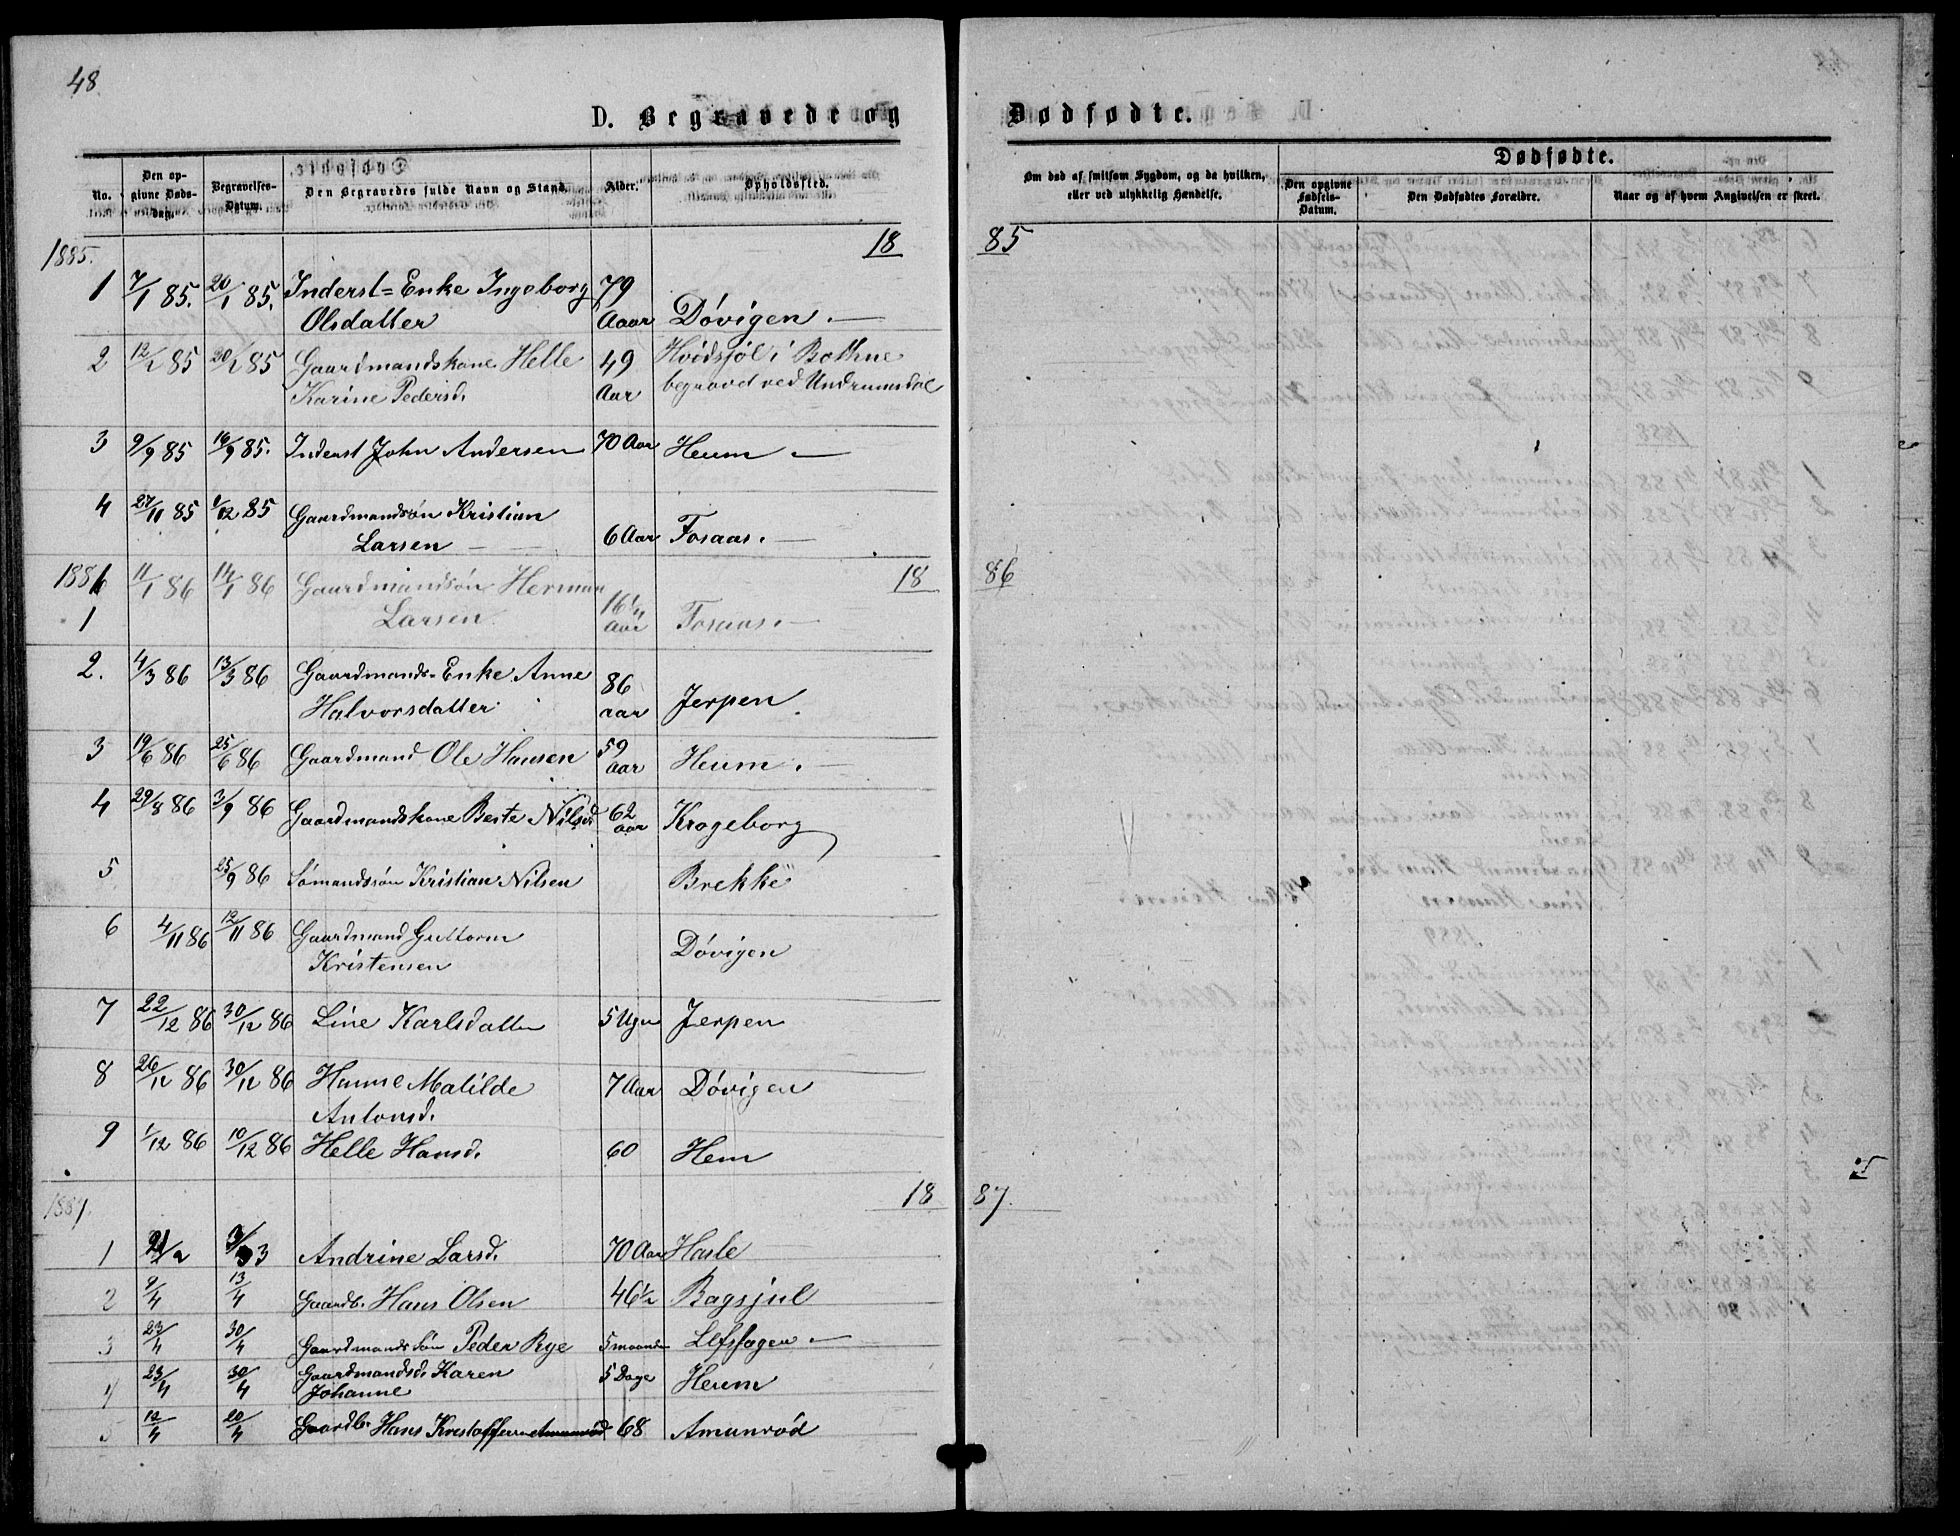 48
D. Begravede og Dødfødte.
No. Den opgivne Dødsdag. Begravelses-Datum. Den Begravedes fulde Navn og Stand. Alder. Opholdssted. Om død af smitsom Sygdom, og da hvilken, eller ved ulykkelig Hændelse. Dødfødte.
Den opgivne Fødsels-Datum. Den Dødfødtes Forældre. Naar og af hvem Angivelsen er skeet.
1885. 18 85
1 7/1 85. 20/1 85. Inderst=Enke Ingeborg 79
Olsdatter Aaar Dövigen. —
2 12/2 85 20/2 85 Gaardmandskone Helle 49 i Bothne
Karine Pedersd. Aar begravet ved Undrumsdal
3 9/9 85 16/9 85. Inderst John Andersen 70 Aar Heum —
4 27/11 85 1/12 85 Gaardmandsön Kristian
Larsen — 6 Aar Fosaas. —
1886 11/1 86 14/1 86 Gaardmandsön Herman 18 86
1 Larsen 16 Aar Fosaas. —
2. 4/3 86 13/3 86 Gaardmands-Enke Anne 86
Halvorsdatter aar Jerpen.
3 19/6 86 25/6 86 Gaardmand Ole Hansen 59 aar Heum. —
4 29/8 86 3/9 86 Gaardmandskone Berte Nilsd 62 aar Krogeborg
5 25/9 86 Sömandssön Kristian Nilsen Brekke
6 4/11 86 12/11 86 Gaardmand Guttorm
Kristensen Dövigen
7 22/12 86 30/12 86 Line Karlsdatter 5 Uger Jerpen
8 26/12 86 30/12 86 Hanne Matilde 7 Aar Dövigen
Antonsd.
9 1/12 86 10/12 86 Helle Hansd. 60 Hem
1887. 18 87.
1 3/3 Andrine Larsd. 70 Aar Hasle
2 9/4 13/4 Gaardb. Hans Olsen 46½ Bagsjul
3 23/4 30/4 Gaardmands Sön Peder Rye 5 maander
4 23/4 30/4 Gaardmandsd. Karen 5 Dage Heum
Johanne
5 12/4 20/4 Gaardb. Hans 68 Amunröd